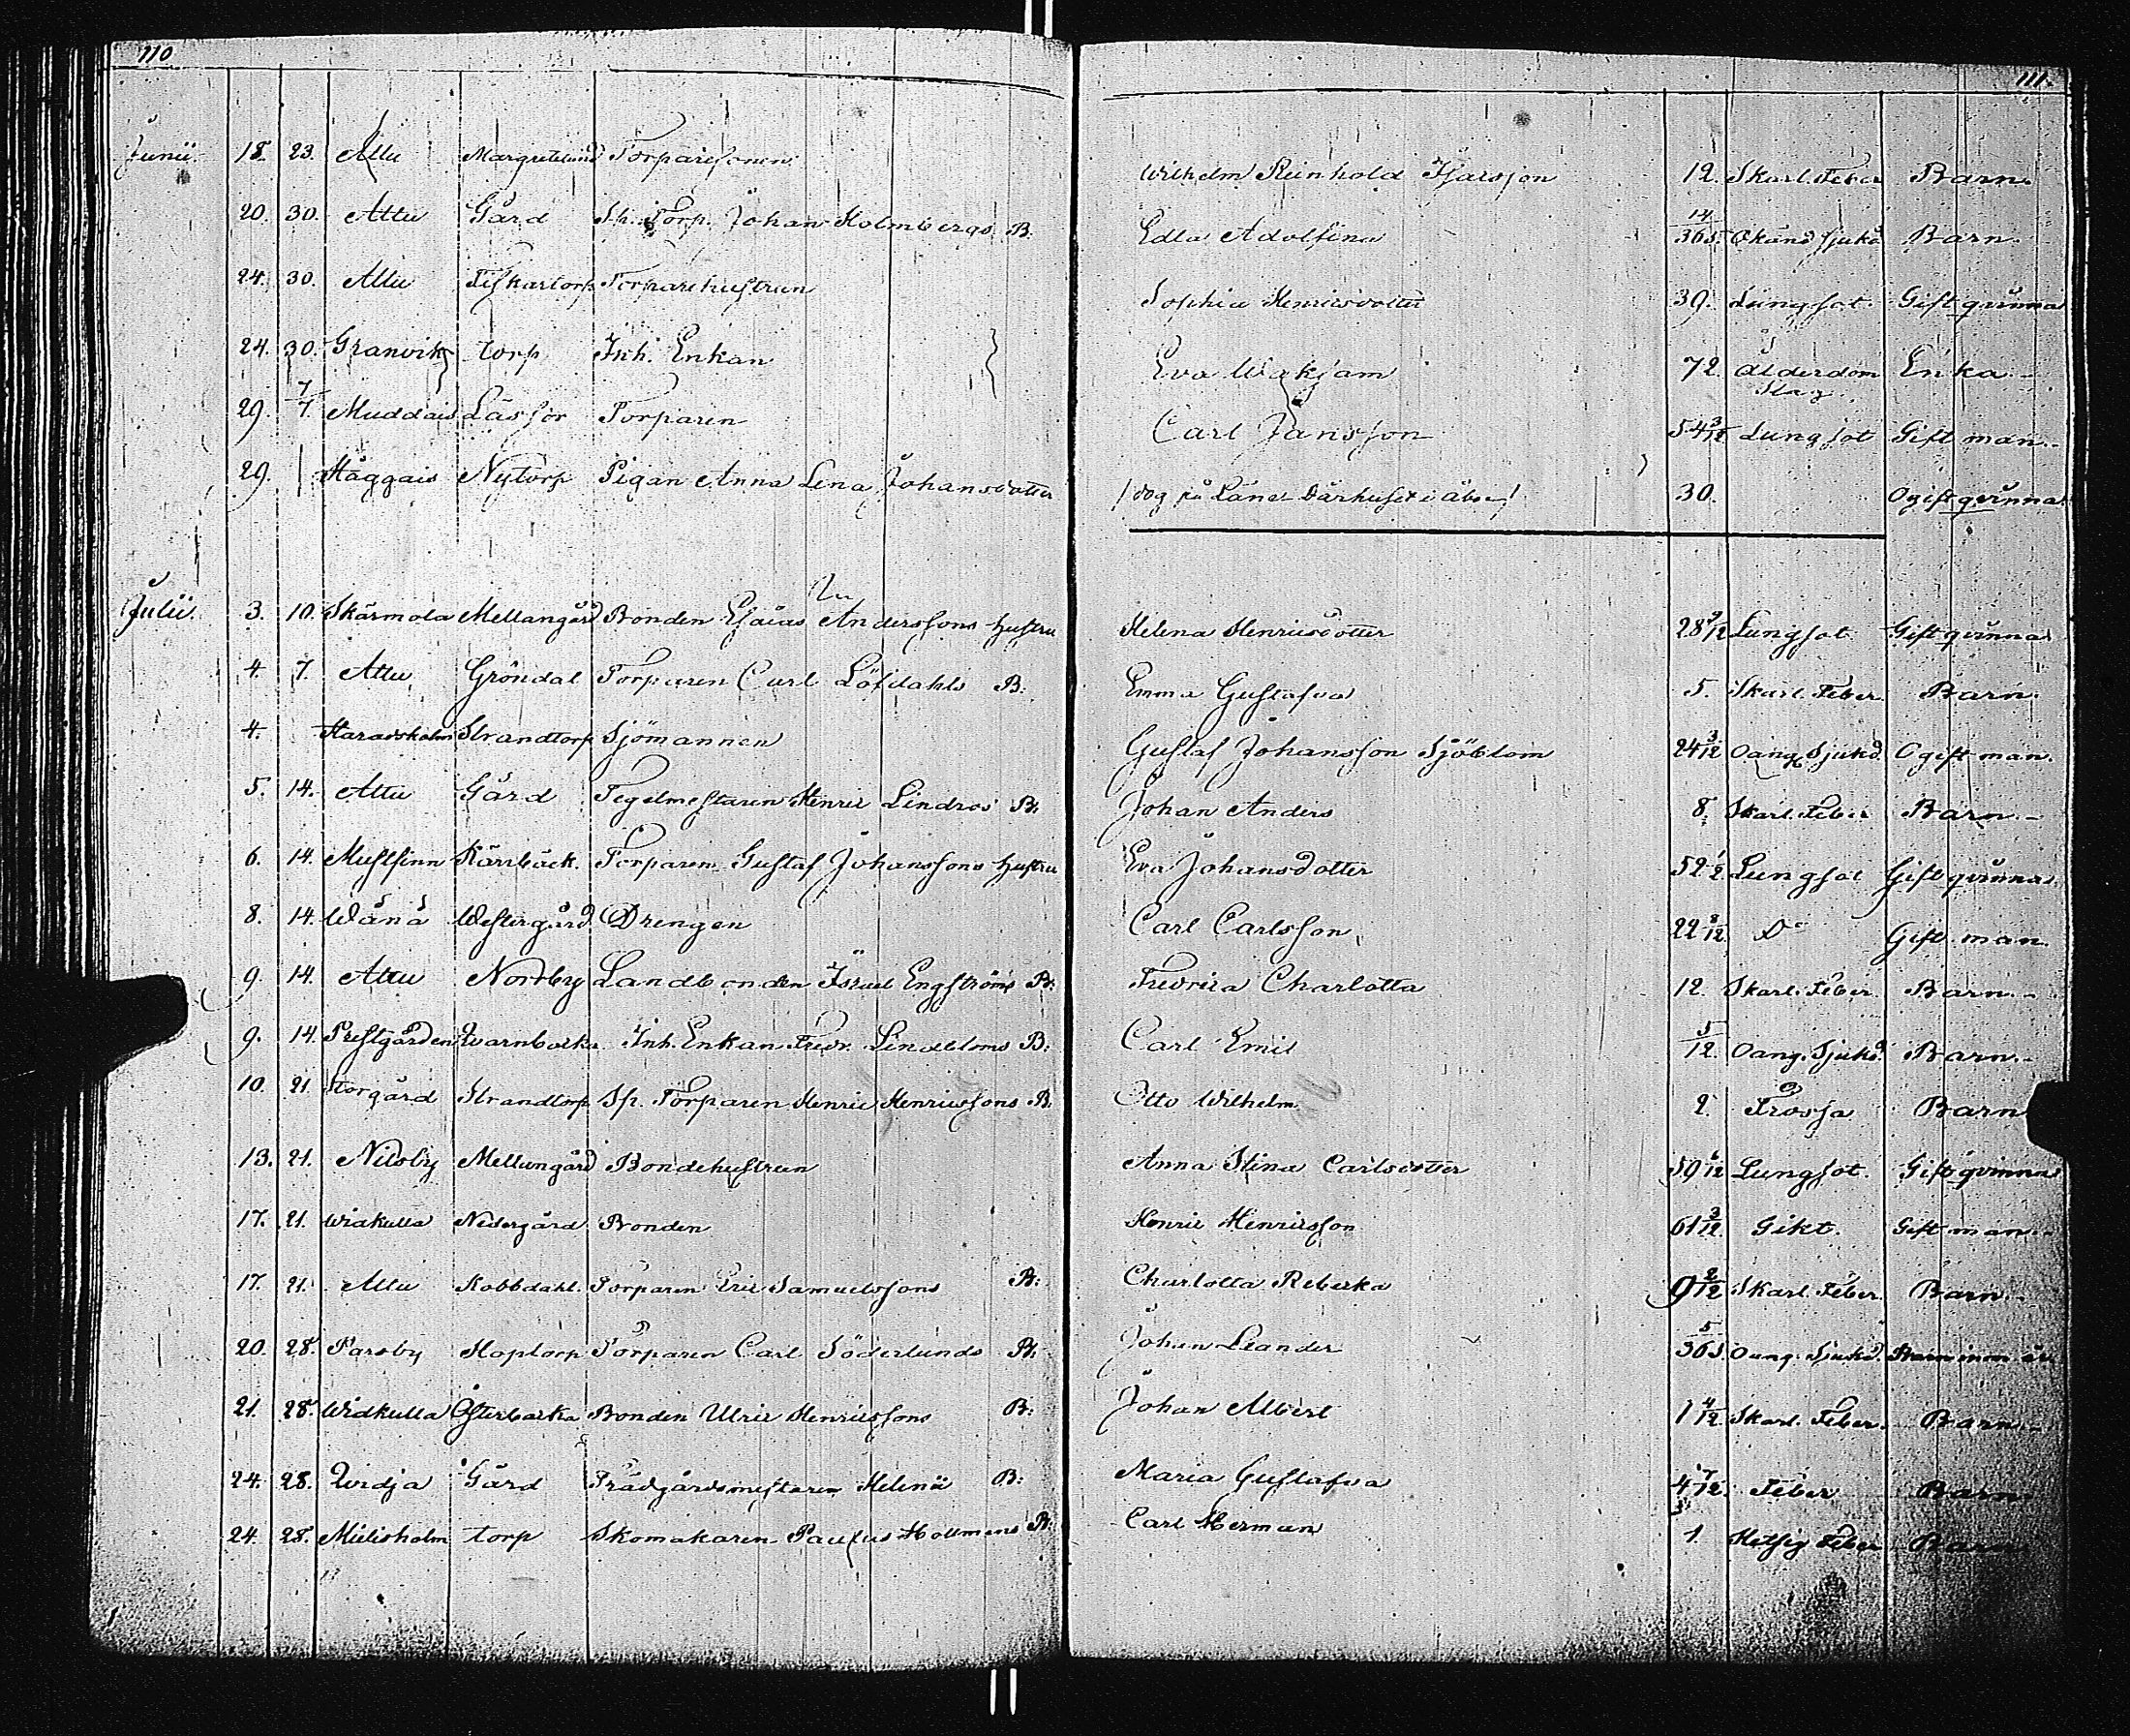 110
111.
Junii. 18. 23. Attu Margretelund Torparesonen Wilhelm Reinhold Isacsson 12. Skarl. Feber Barn.
20. 30. Attu Gård Sp. Torp. Johan Holmbergs B. Edla Adolfina 14/365. Okänd sjukd. Barn.
24. 30. Attu Fiskartorp Torparehustrun Sophia Henricsdotter 39. Lungsot. Gift qvinna
24. 30. Granvik torp Inh. Enkan Eva Wikstam 72. Ålderdom Enka.
Slag.
29. 7/7. Muddais Låssor Torparen Carl Jansson 54 3/12 Lungsot Gift man.
29. Häggais Nytorp Pigan Anna Lena Johansdotter / dog på Läns Dårhuset i Åbo / 30. Ogift qvinna
Julii. 3. 10. Skärmola Mellangård Bonden Esaias Anderssons hustru Helena Henricsdotter 28 9/12 Lungsot. Gift qvinna
4. 7. Attu Gröndal Torparen Carl Löfdahls B: Emma Gustafva 5. Skarl. Feber. Barn.
4. Haradsholm Strandtorp Sjömannen Gustaf Johansson Sjöblom 24 3/12 Oang. Sjukd. Ogift man.
5. 14. Attu Gård Tegelmestaren Henric Lindros B: Johan Anders 8. Skarl. Feber Barn.
6. 14. Mustfinn Kärrbäck. Torparen Gustaf Johanssons hustru Eva Johansdotter 52 1/2 Lungsot Gift qvinna.
8. 14. Wånå Westergård Drengen Carl Carlsson, 22 8/12 Do Gift man
9. 14. Attu Nordby Landbonden Israel Engströms B: Fredrica Charlotta 12. Skarl. Feber. Barn.
9. 14. Prestgården Qvarnbacka. Inh. Enkan Fredr. Lindbloms B: Carl Emil 5/12. Oang. Sjukd. Barn.
10. 21. Storgård Strandtorp Sp. Torparen Henric Henricssons B: Otto Wilhelm 2. Frossa Barn
13. 21. Nilsby Mellangård Bondehustrun Anna Stina Carlsdotter 59 6/12 Lungsot. Gift qvinna
17. 21. Widkulla Nedergård Bonden Henric Henricsson 61 3/12. Gikt. Gift man.
17. 21. Attu Kobbdahl. Torparen Eric Samuelssons B: Charlotta Rebecka 9 2/12 Skarl. Feber. Barn
20. 28. Parsby Torparen Carl Söderlunds B: Johan Leander 5/365. Oang. Sjukd. Barn inom år
21. 28. Widkulla Österbacka Bonden Ulric Henricssons B: Johan Albert 1 4/12 Skarl. Feber. Barn.
24. 28. Qvidja Gård Trädgårdsmestaren Helenii B: Maria Gustafva 4 7/12. Feber Barn
24. 28. Mielisholm torp Skomakaren Paulus Hollmens B: Carl Herman 1. Hetsig Feber Barn